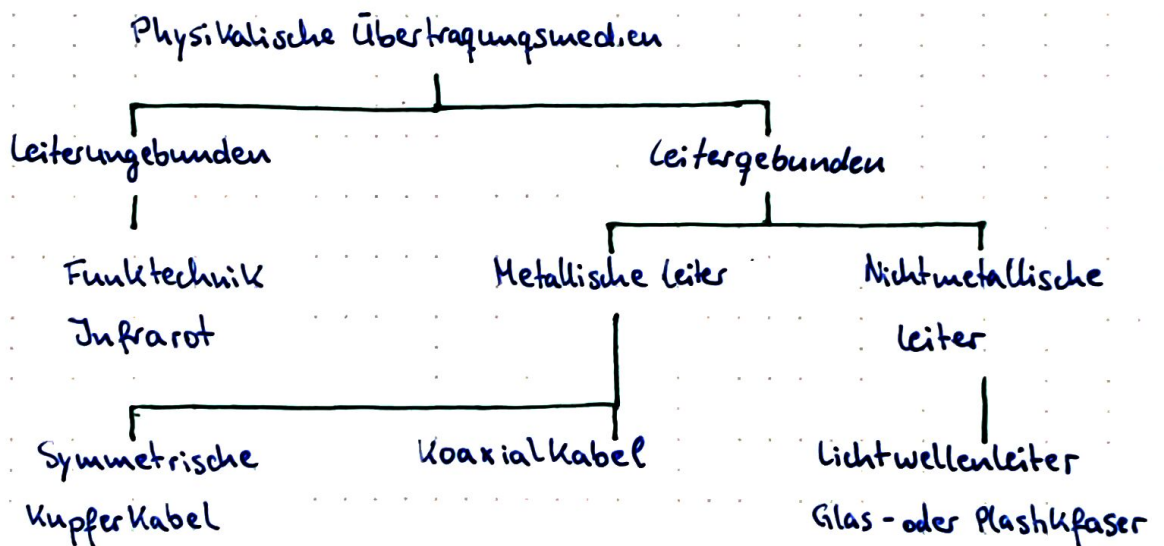 Physikalische Übertragungsmedien
Leiterungebunden
Leitergebunden
Funktechnik
Infrarot
Metallische Leiter
Nichtmetallische
Leiter
Symmetrische
Kupferkabel
Koaxialkabel
Lichtwellenleiter
Glas- oder Plastikfaser